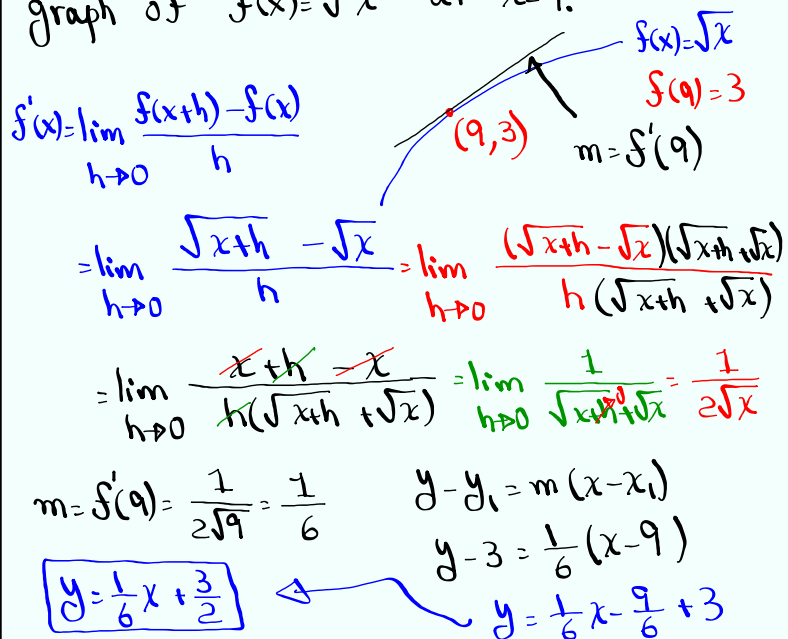 graph of f(x)=√x at x=9.
f(x)=√x
f(9)=3
(9,3)
m=f'(9)
f'(x)=lim h→0 (f(x+h)-f(x))/h
=lim h→0 (√x+h -√x)/h =lim h→0 (√x+h -√x)(√x+h +√x)/h(√x+h +√x)
=lim h→0 (x+h-x)/h(√x+h +√x) =lim h→0 1/(√x+h +√x) = 1/2√x
m=f'(9)= 1/2√9 = 1/6
y-y₁=m(x-x₁)
y-3=1/6(x-9)
y=1/6x-9/6+3
y=1/6x+3/2